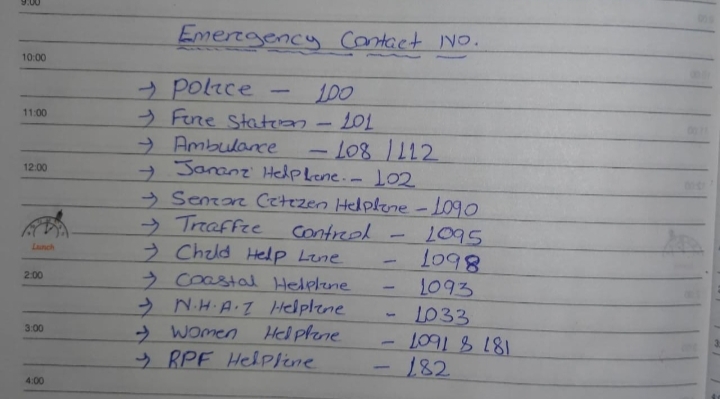 9:00
Emergency Contact NO.
10:00
→ Police - 100
11:00
→ Fire Station - 101
→ Ambulance - 108 / 112
12:00
→ Janani Helpline. - 102
→ Senior Citizen Helpline - 1090
→ Traffic control - 1095
Lunch
→ Child Help Line - 1098
2:00
→ Coastal Helpline - 1093
→ N.H.A.I Helpline - 1033
3:00
→ Women Helpline - 1091 & 181
→ RPF Helpline - 182
4:00